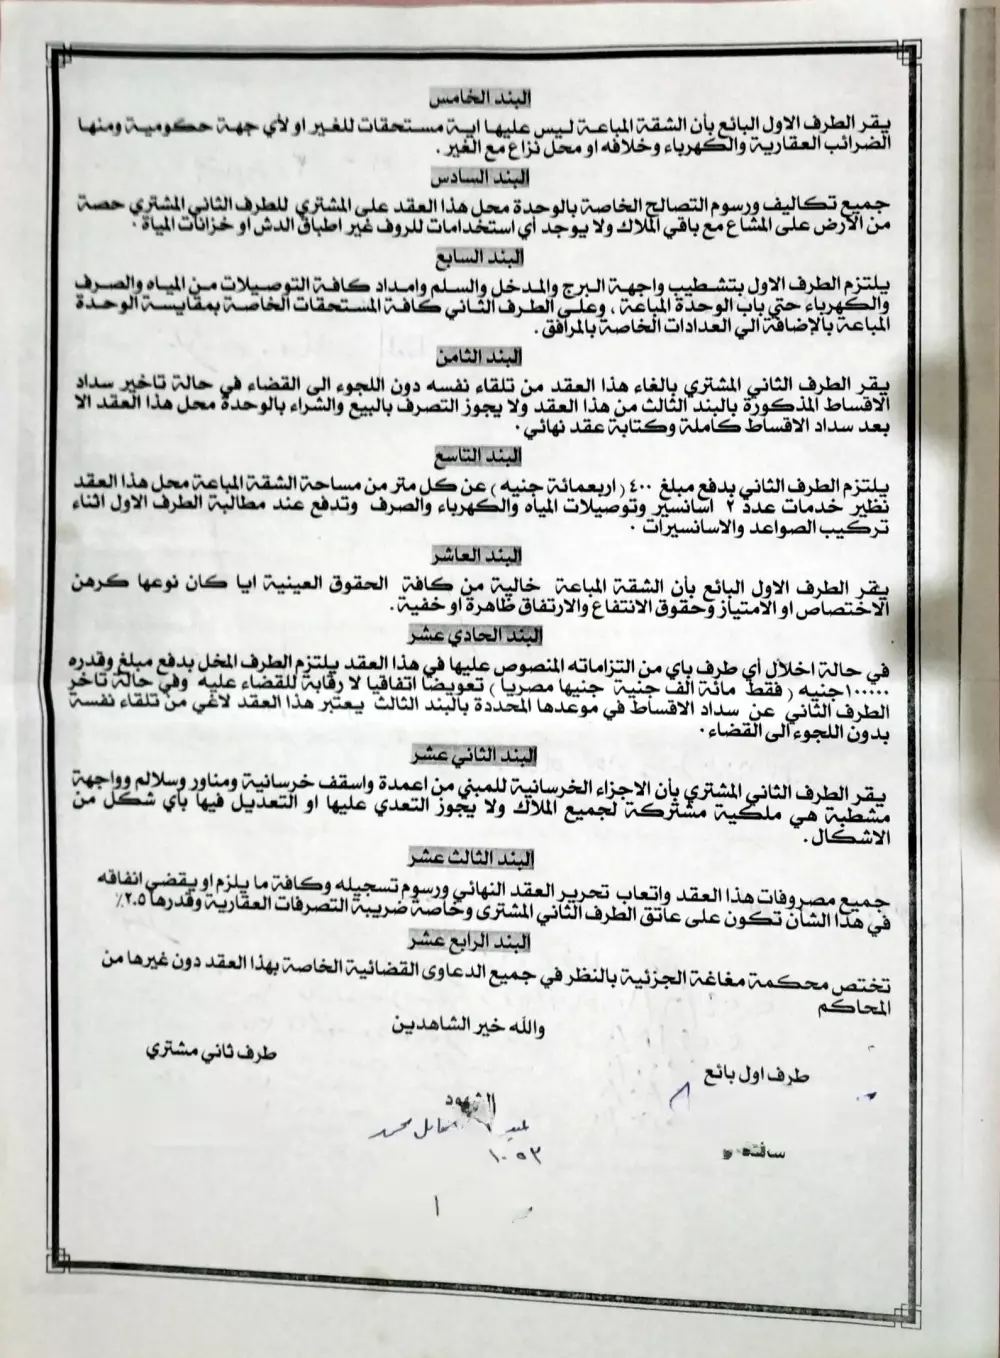 البند الخامس
يقر الطرف الاول البائع بأن الشقة المباعة ليس عليها اية مستحقات للغير او لأي جهة حكومية ومنها
الضرائب العقارية والكهرباء وخلافه او محل نزاع مع الغير .
البند السادس
جميع تكاليف ورسوم التصالح الخاصة بالوحدة محل هذا العقد على المشتري للطرف الثاني المشتري حصة
من الأرض على المشاع مع باقي الملاك ولا يوجد أي استخدامات للروف غير اطباق الدش او خزانات المياة .
البند السابع
يلتزم الطرف الاول بتشطيب واجهة البرج والمدخل والسلم وامداد كافة التوصيلات من المياه والصرف
والكهرباء حتي باب الوحدة المباعة ، وعلى الطرف الثاني كافة المستحقات الخاصة بمقايسة الوحدة
المباعة بالإضافة الي العدادات الخاصة بالمرافق .
البند الثامن
يقر الطرف الثاني المشتري بالغاء هذا العقد من تلقاء نفسه دون اللجوء الى القضاء في حالة تاخير سداد
الاقساط المذكورة بالبند الثالث من هذا العقد ولا يجوز التصرف بالبيع والشراء بالوحدة محل هذا العقد الا
بعد سداد الاقساط كاملة وكتابة عقد نهائي .
البند التاسع
يلتزم الطرف الثاني بدفع مبلغ ٤٠٠ ( اربعمائة جنيه ) عن كل متر من مساحة الشقة المباعة محل هذا العقد
نظير خدمات عدد ٢ اسانسير وتوصيلات المياه والكهرباء والصرف وتدفع عند مطالبة الطرف الاول اثناء
تركيب الصواعد والاسانسيرات .
البند العاشر
يقر الطرف الاول البائع بأن الشقة المباعة خالية من كافة الحقوق العينية ايا كان نوعها كرهن
الاختصاص او الامتياز وحقوق الانتفاع والارتفاق ظاهرة او خفية .
البند الحادي عشر
في حالة اخلال أي طرف باي من التزاماته المنصوص عليها في هذا العقد يلتزم الطرف المخل بدفع مبلغ وقدره
١٠٠٠٠٠جنيه ( فقط مائة الف جنية جنيها مصريا ) تعويضا اتفاقيا لا رقابة للقضاء عليه وفي حالة تاخر
الطرف الثاني عن سداد الاقساط في موعدها المحددة بالبند الثالث يعتبر هذا العقد لاغي من تلقاء نفسة
بدون اللجوء الى القضاء .
البند الثاني عشر
يقر الطرف الثاني المشتري بأن الاجزاء الخرسانية للمبني من اعمدة واسقف خرسانية ومناور وسلالم وواجهة
مشطبة هي ملكية مشتركة لجميع الملاك ولا يجوز التعدي عليها او التعديل فيها بأي شكل من
الاشكال .
البند الثالث عشر
جميع مصروفات هذا العقد واتعاب تحرير العقد النهائي ورسوم تسجيله وكافة ما يلزم او يقضى انفاقه
في هذا الشان تكون على عاتق الطرف الثاني المشترى وخاصة ضريبة التصرفات العقارية وقدرها ٢.٥٪
البند الرابع عشر
تختص محكمة مغاغة الجزئية بالنظر في جميع الدعاوى القضائية الخاصة بهذا العقد دون غيرها من
المحاكم
والله خير الشاهدين
طرف اول بائع
طرف ثاني مشتري
الشهود